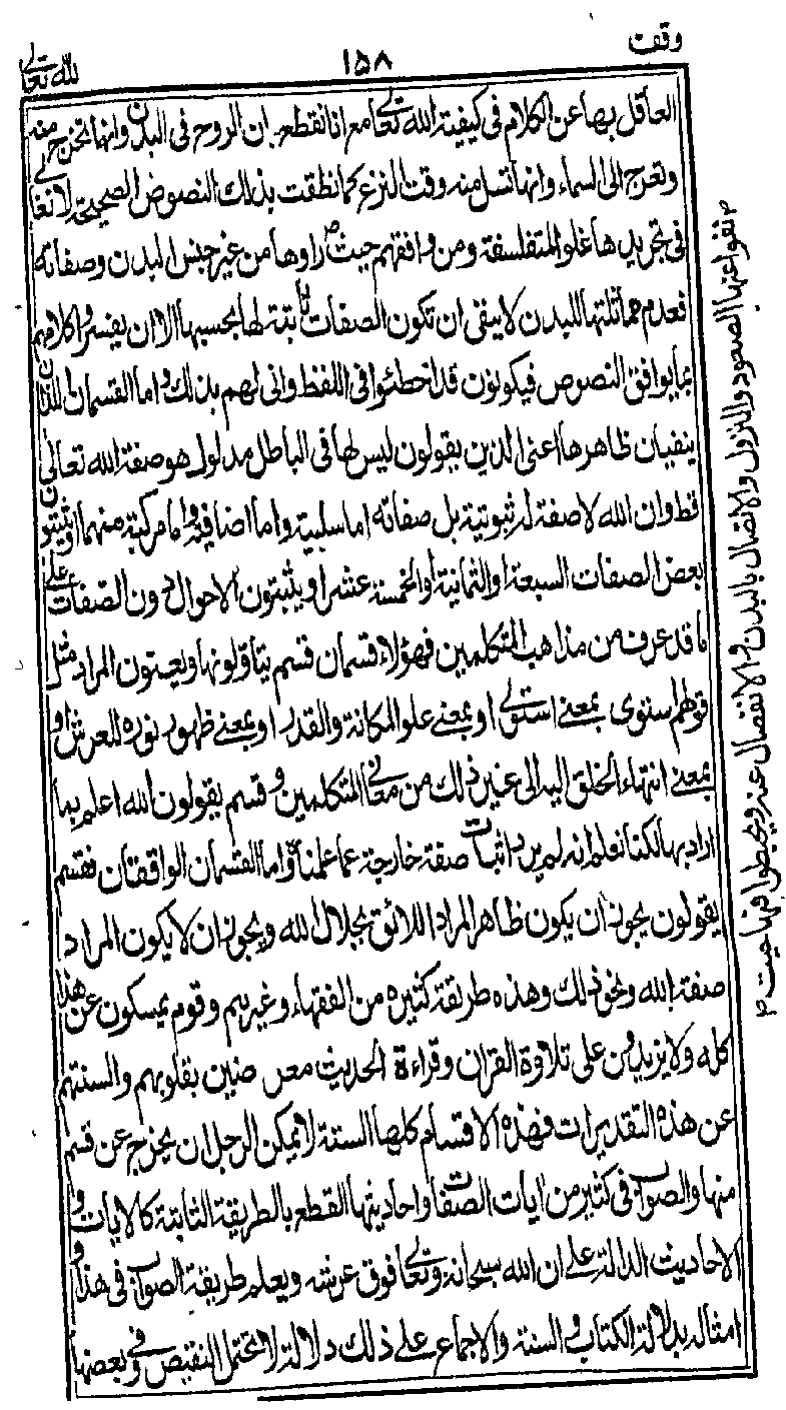 وقف
١٥٨
لله تعالى
العاقل بها عن الكلام في كيفية الله تعالى مع انا نقطع بان الروح في البدن وانها تخرج منه
وتعرج الى السماء وانها تسل منه وقت النزع كما نطقت بذلك النصوص الصحيحة لا نغالي
في تجريدها غلو المتفلسفة ومن وافقهم حيث ٢ راوها من غير جنس البدن وصفاته
فعدم مماثلتها للبدن لا ينفى ان تكون الصفات ثابتة لها بحسبها الا ان يفسروا كلامهم
بما يوافق النصوص فيكونون قد اخطئوا في اللفظ وانى لهم بذلك واما القسمان اللذان
ينفيان ظاهرها اعنى الذين يقولون ليس لها في الباطل مدلول هو صفة الله تعالى
قط وان الله لا صفة له ثبوتية بل صفاته اما سلبية واما اضافية واما مركبة منهما او يثبتون
بعض الصفات السبعة او الثمانية او الخمسة عشر او يثبتون الاحوال دون الصفات على
ما قد عرف من مذاهب المتكلمين فهؤلاء قسمان قسم يتأولونها ويعينون المراد مثل
قولهم استوى بمعنى استولى او بمعنى علو المكانة والقدر او بمعنى ظهور نوره للعرش او
بمعنى انتهاء الخلق اليه الى غير ذلك من معاني المتكلمين وقسم يقولون الله اعلم بما
اراد بها لكنا نعلم انه لم يرد اثبات صفة خارجة عما علمنا واما القسمان الواقفان فقسم
يقولون يجوز ان يكون ظاهر المراد اللائق بجلال الله ويجوز ان لا يكون المراد
صفة الله ونحو ذلك وهذه طريقة كثيرة من الفقهاء وغيرهم وقوم يمسكون عن هذا
كله ولا يزيدون على تلاوة القران وقراءة الحديث معرضين بقلوبهم والسنتهم
عن هذه التقديرات فهذه الاقسام كلها الستة لا يمكن الرجل ان يخرج عن قسم
منها والصواب في كثير من ايات الصفات واحاديثها القطع بالطريقة الثابتة كالايات و
الاحاديث الدالة على ان الله سبحانه وتعالى فوق عرشه ويعلم طريقة الصواب في هذا و
امثاله بدلالة الكتاب والسنة والاجماع على ذلك دلالة لا تحتمل النقيض وفي بعضها
٢ نفوا عنها الصعود والنزول والاتصال بالبدن والانفصال عنه ويخبطوا فيها حيث ٢